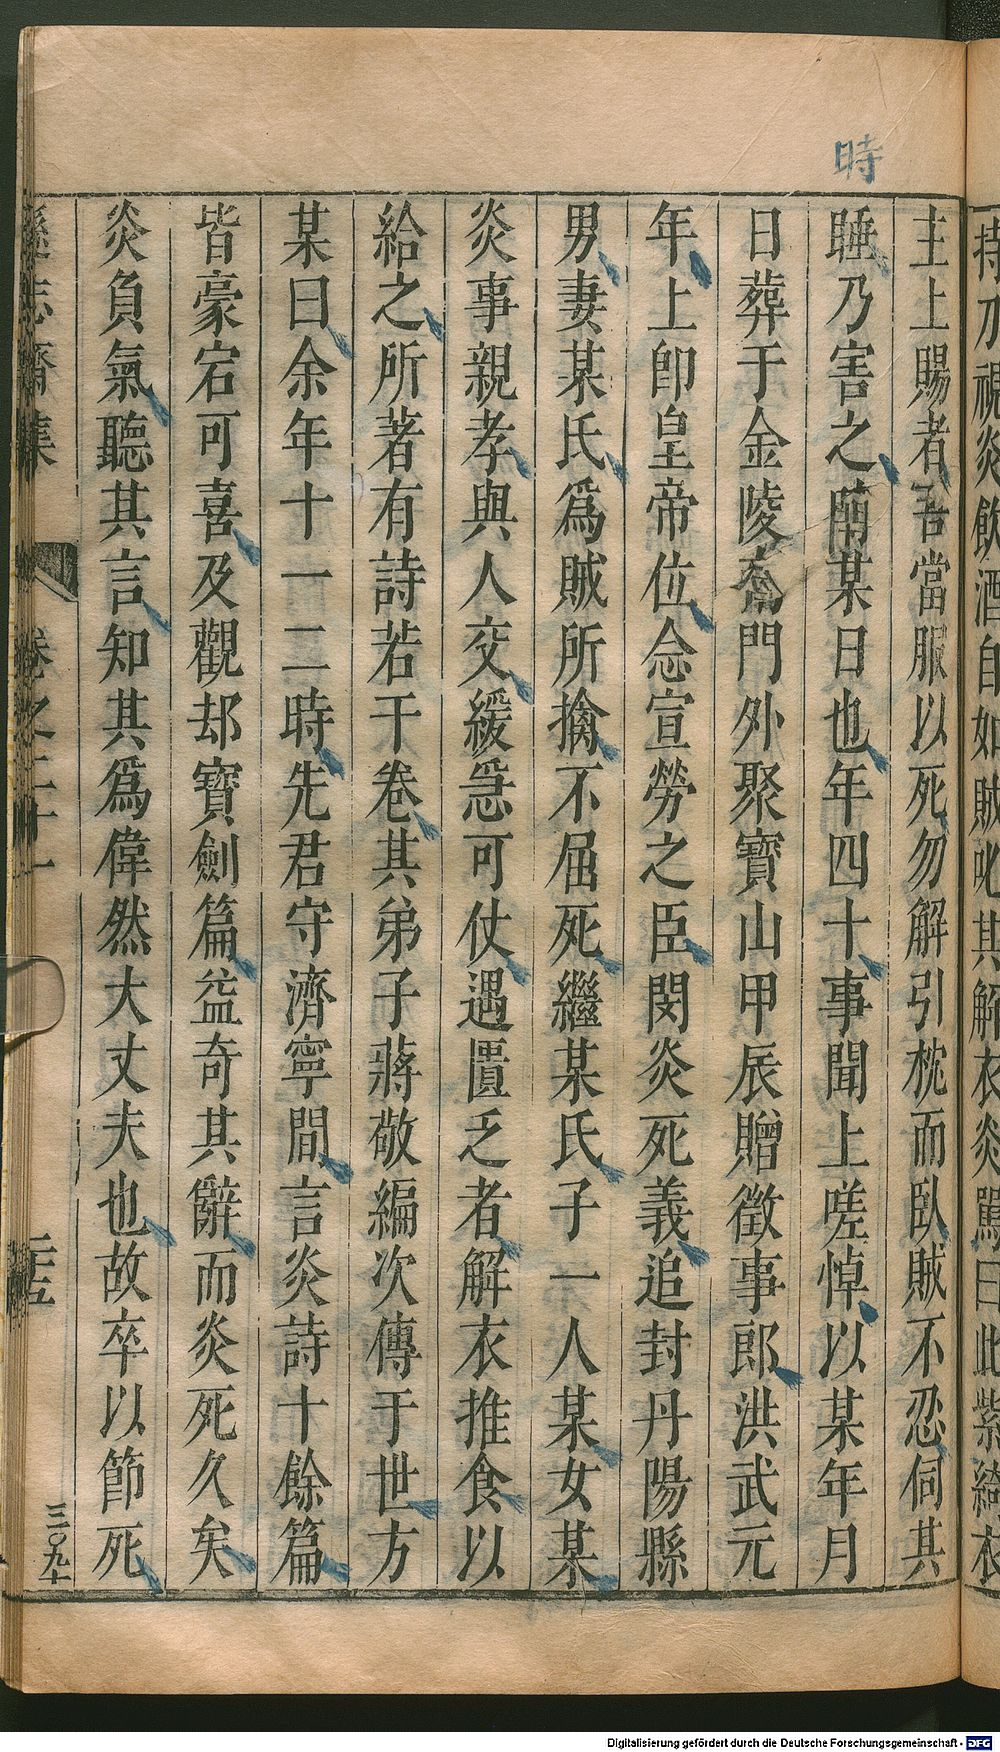 持刀視炎飲酒自如賊叱其解衣炎罵曰此紫綺衣
時
主上賜者吾當服以死勿解引枕而臥賊不忍伺其
睡乃害之蘭某日也年四十事聞上嗟悼以某年月
日葬于金陵舊門外聚寶山甲辰贈徵事郎洪武元
年上卽皇帝位念宣勞之臣閔炎死義追封丹陽縣
男妻某氏爲賊所擒不屈死繼某氏子一人某女某
炎事親孝與人交緩急可仗遇匱乏者解衣推食以
給之所著有詩若干卷其弟子蔣敬編次傳于世方
某曰余年十一二時先君守濟寧間言炎詩十餘篇
皆豪宕可喜及觀却寶劍篇益奇其辭而炎死久矣
炎負氣聽其言知其爲偉然大丈夫也故卒以節死
遜志齋集 卷之二十一 二五
三〇九十
Digitalisierung gefördert durch die Deutsche Forschungsgemeinschaft - DFG